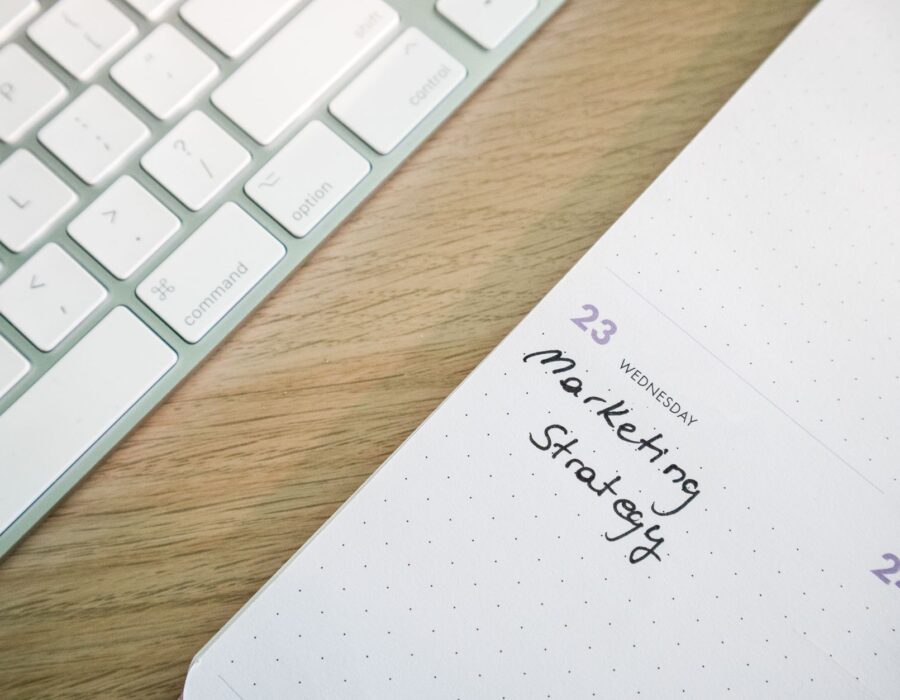 shift
control
option
command
P
L
?
/
>
.
<
,
23
WEDNESDAY
Marketing
Strategy